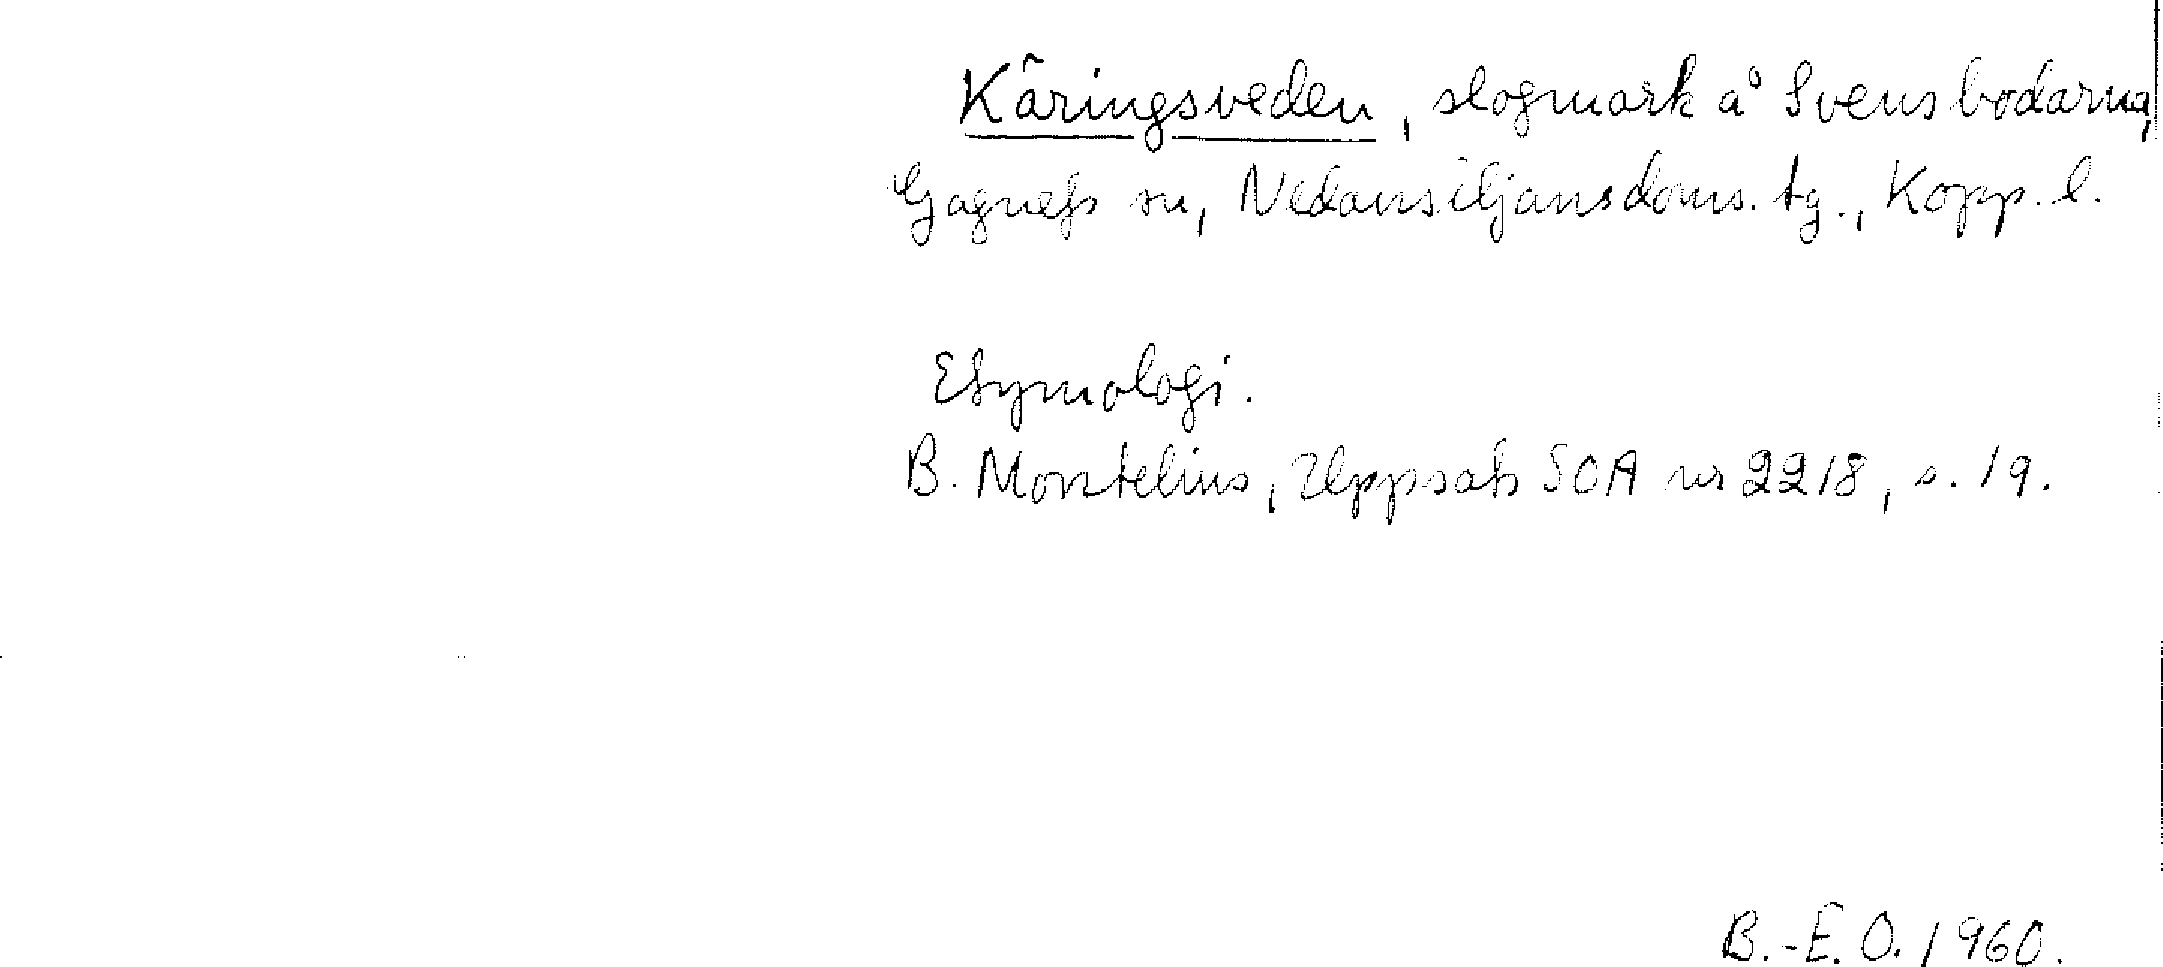 Käringsveden, slogmark å Svensbodarna,
Gagnefs sn, Nedansiljansdoms. tg., Kopp. l.
Etymologi.
B. Montelius, Uppsats SOA nr 2218, s. 19.
B.-E. O. 1960.